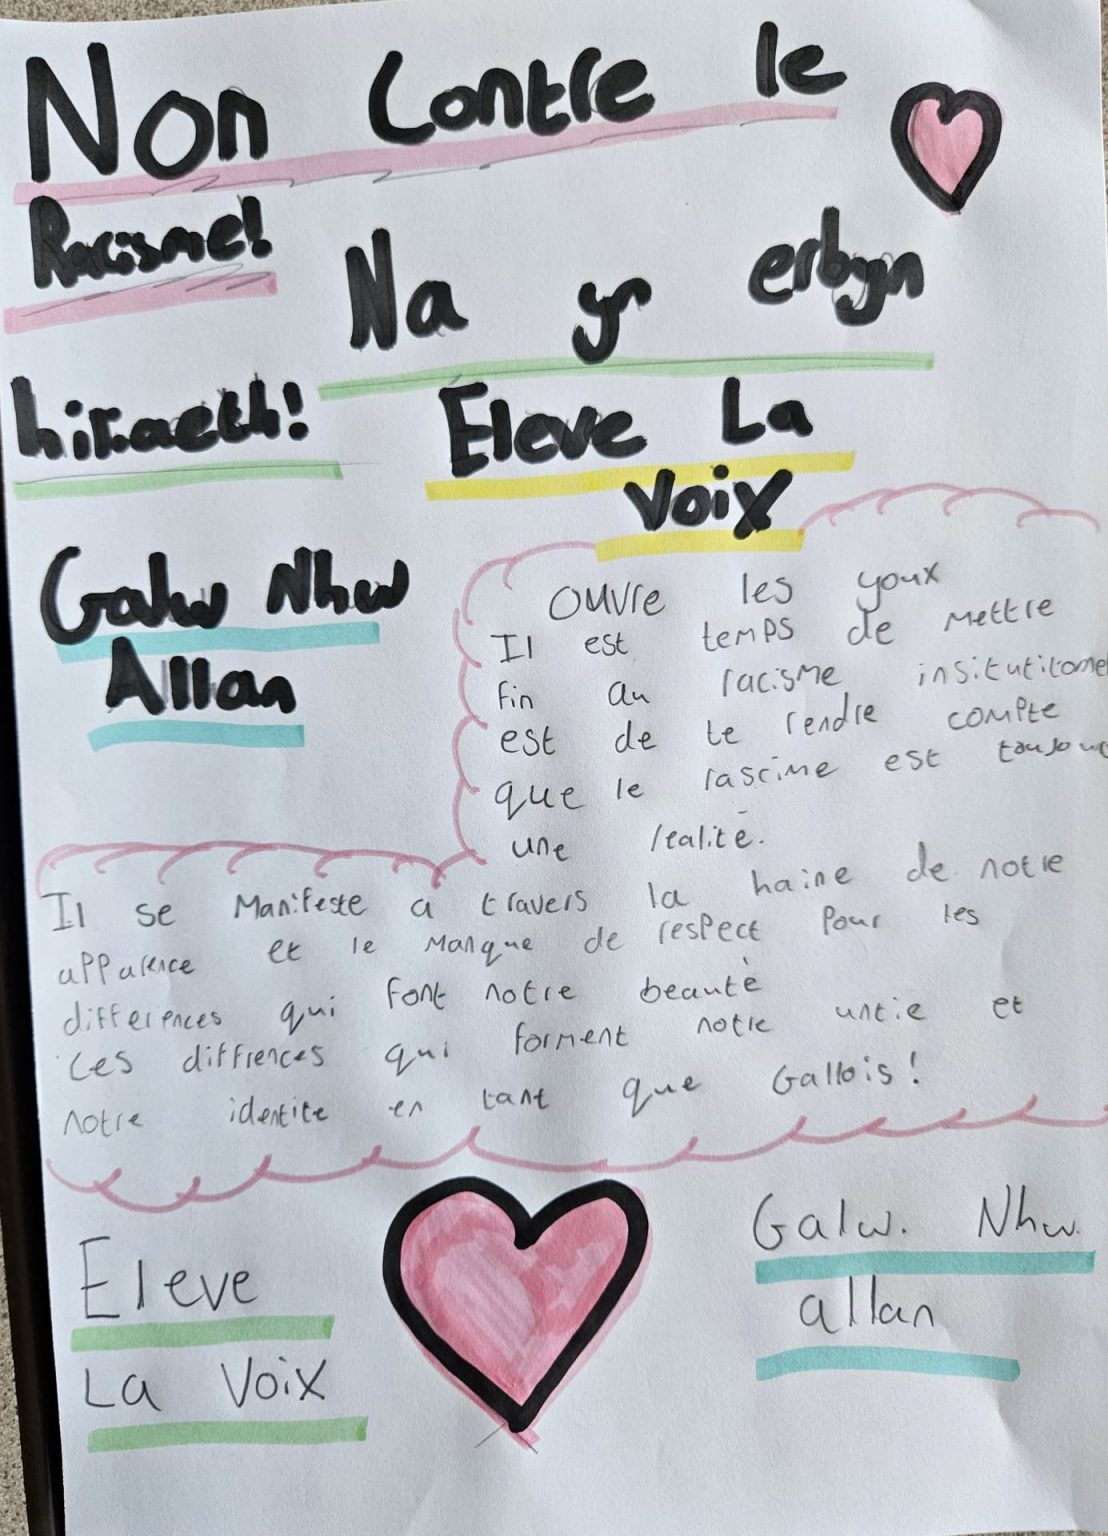 Non Contre le
Racisme!
Na yr erbyn
hiraeth!
Eleve La
Voix
Galw Nhw
Allan
Ouvre les youx
Il est temps de mettre
fin au racisme
est de te rendre compte
que le rascime est toujours
une réalité.
Il se Manifeste a travers la haine de notre
apparence et le Manque de respect pour les
differences qui font notre beauté
Ces diffrences qui forment notre untie et
notre identite en tant que Gallois!
Eleve
La Voix
Galw. Nhw.
allan